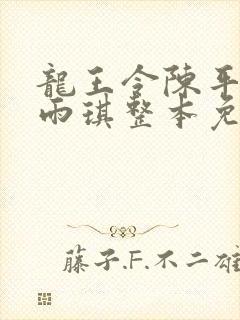 龍王令陳平
雨琪整本免
藤子.F.不二雄